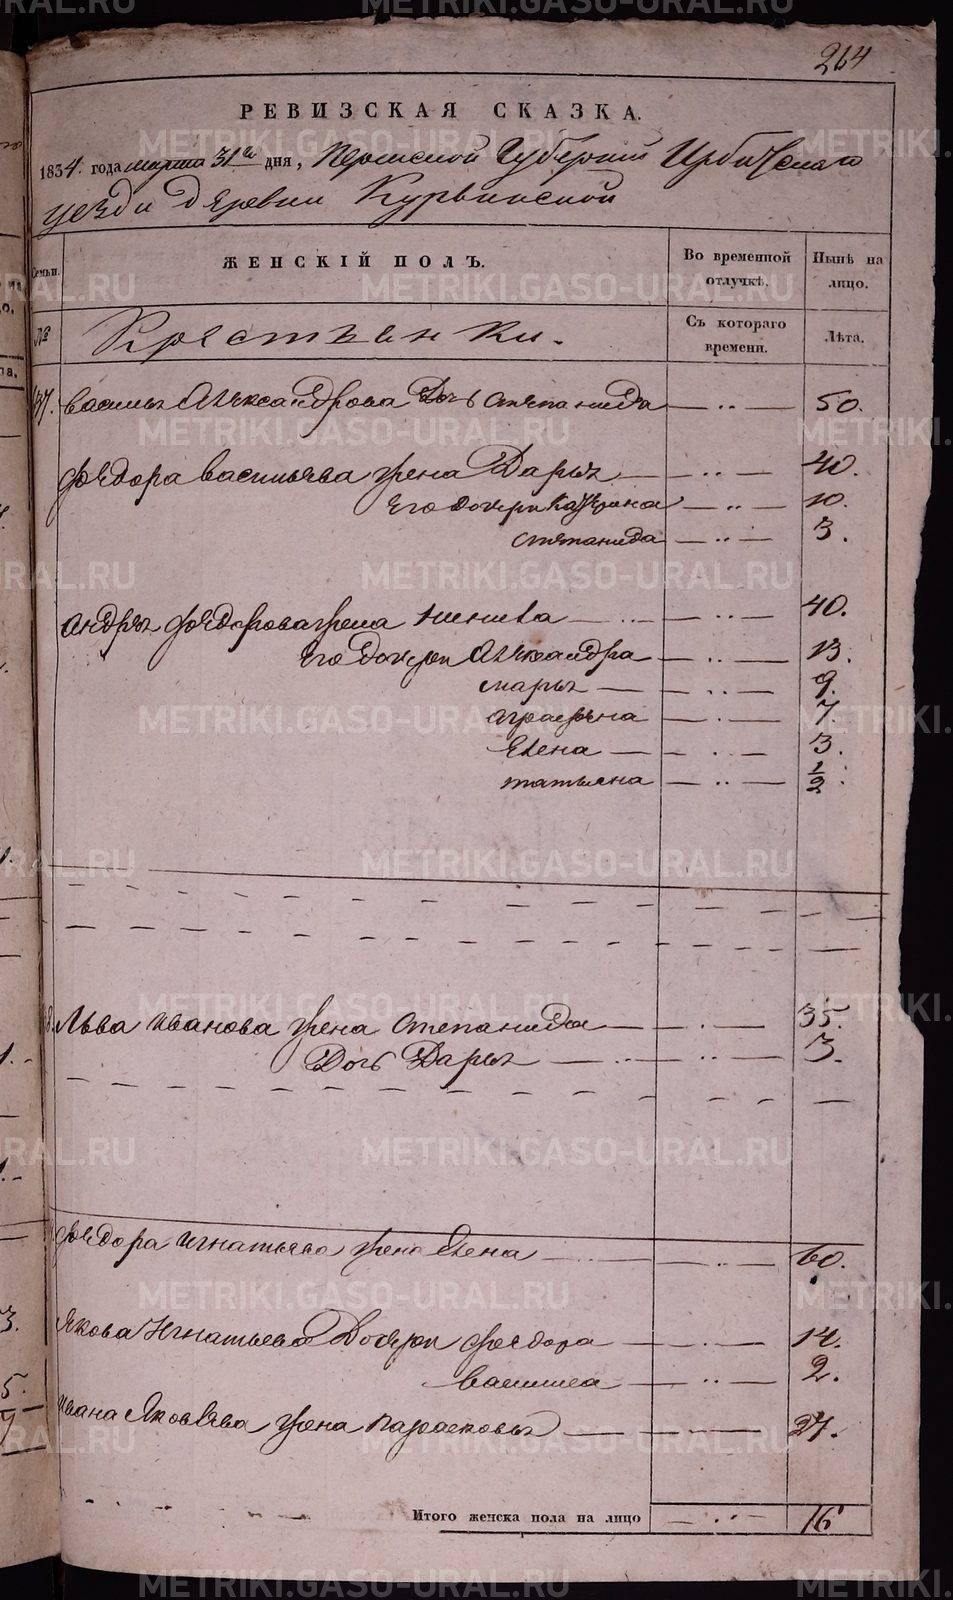 264
РЕВИЗСКАЯ СКАЗКА.
1834. года марта 31го дня, Пермской Губернии Ирбитскаго
уезда деревни Курьинской
Семьи. ЖЕНСКІЙ ПОЛЪ. Во временной отлучкѣ. Нынѣ на лицо.
№ Крестьянки. Съ котораго времени. Лѣта.
137. Василья Александрова Дочь степанида — .. — 50.
федора васильева жена Дарья — .. — 40.
его дочери катерина — .. — 10.
степанида — .. — 3.
андрея федорова жена — .. — 40.
Его дочери Александра — .. — 13.
марья — .. — 9.
аграфена — .. — 7.
Елена — .. — 3.
татьяна — .. — 1/2.
Льва иванова жена степанида — . — 35.
Дочь Дарья — .. — 3.
федора игнатьева жена Елена — .. — 60.
Якова Игнатьева Дочери федора — . — 14.
васелиса — .. — 2.
ивана Яковлева жена парасковья — .. — 27.
Итого женска пола на лицо — .. — 16
METRIKI.GASO-URAL.RU